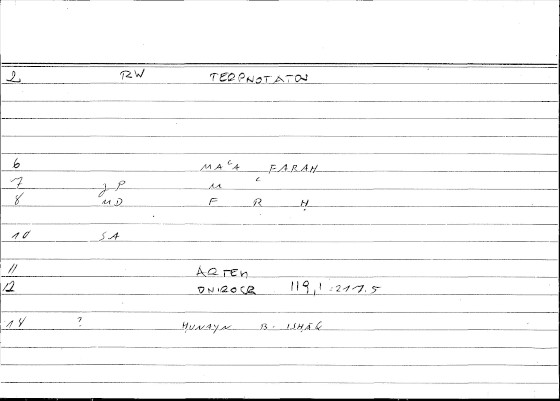 2 RW TERPNOTATON
6 MAᶜA FARAH
7 JP M ᶜ
8 MD F R H
10 SA
11 ARTEM
12 ONIROCR 119,1 :217.5
14 ? HUNAYN B. ISHĀQ